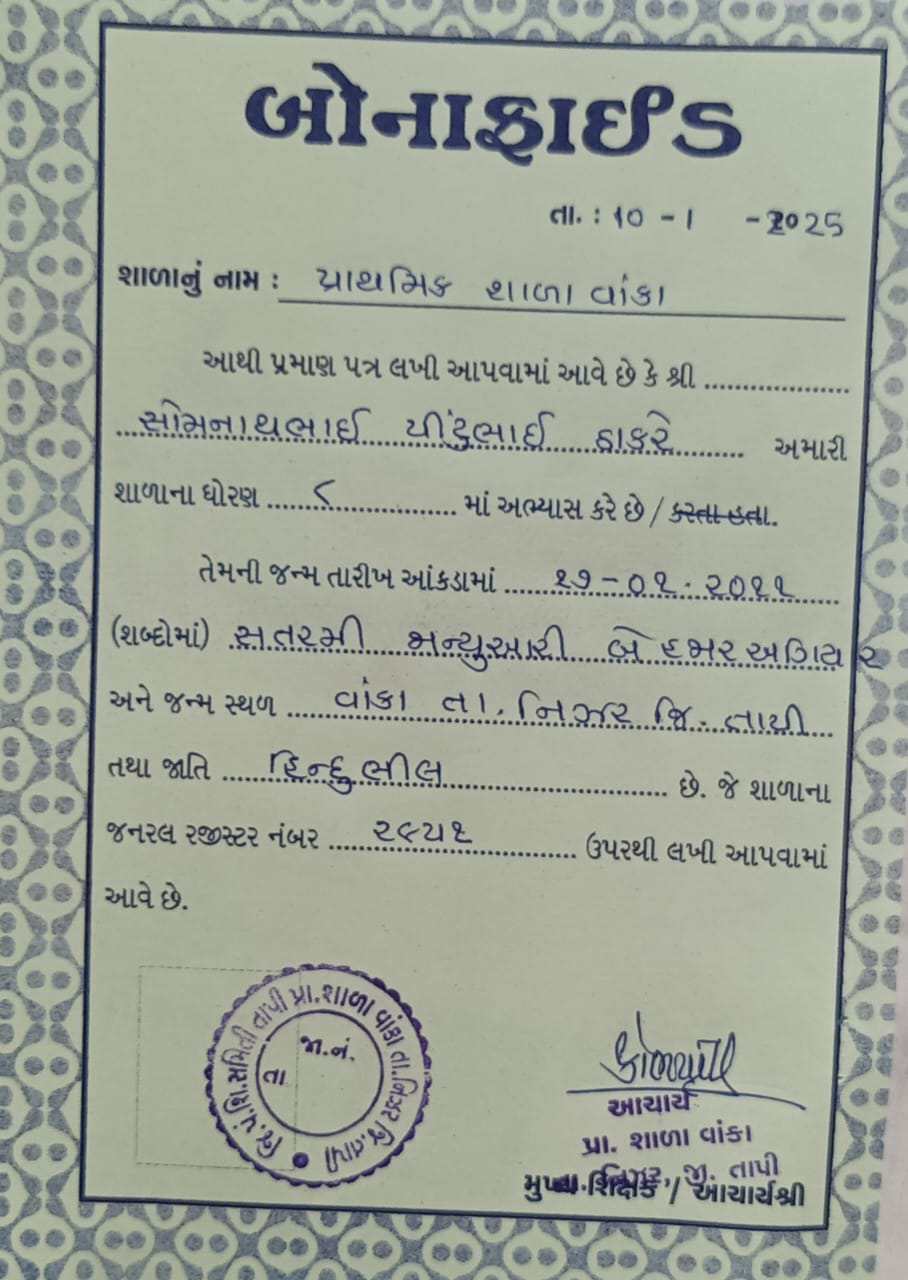 બોનાફાઈડ
તા. : 10 - 1 - 2025
શાળાનું નામ : પ્રાથમિક શાળા વાંકા
આથી પ્રમાણ પત્ર લખી આપવામાં આવે છે કે શ્રી ..................
સોમનાથભાઈ પીંટુભાઈ ઠાકરે અમારી
શાળાના ધોરણ ...... ૮ .................. માં અભ્યાસ કરે છે / કરતા હતા.
તેમની જન્મ તારીખ આંકડામાં ...... ૧૭-૦૧-૨૦૧૧
(શબ્દોમાં) સતરમી જાન્યુઆરી બે હજાર અગિયાર
અને જન્મ સ્થળ ...... વાંકા તા. નિઝર જિ. તાપી
તથા જાતિ ...... હિન્દુ ભીલ .................. છે. જે શાળાના
જનરલ રજીસ્ટર નંબર ...... ૨૯૫૧ ............ ઉપરથી લખી આપવામાં
આવે છે.
જિ.પં.શિ.સમિતી તાપી પ્રા.શાળા વાંકા તા.નિઝર જિ.તાપી
જા.નં.
તા
આચાર્ય
પ્રા. શાળા વાંકા
તા. નિઝર, જી. તાપી
મુખ્ય શિક્ષક / આચાર્યશ્રી